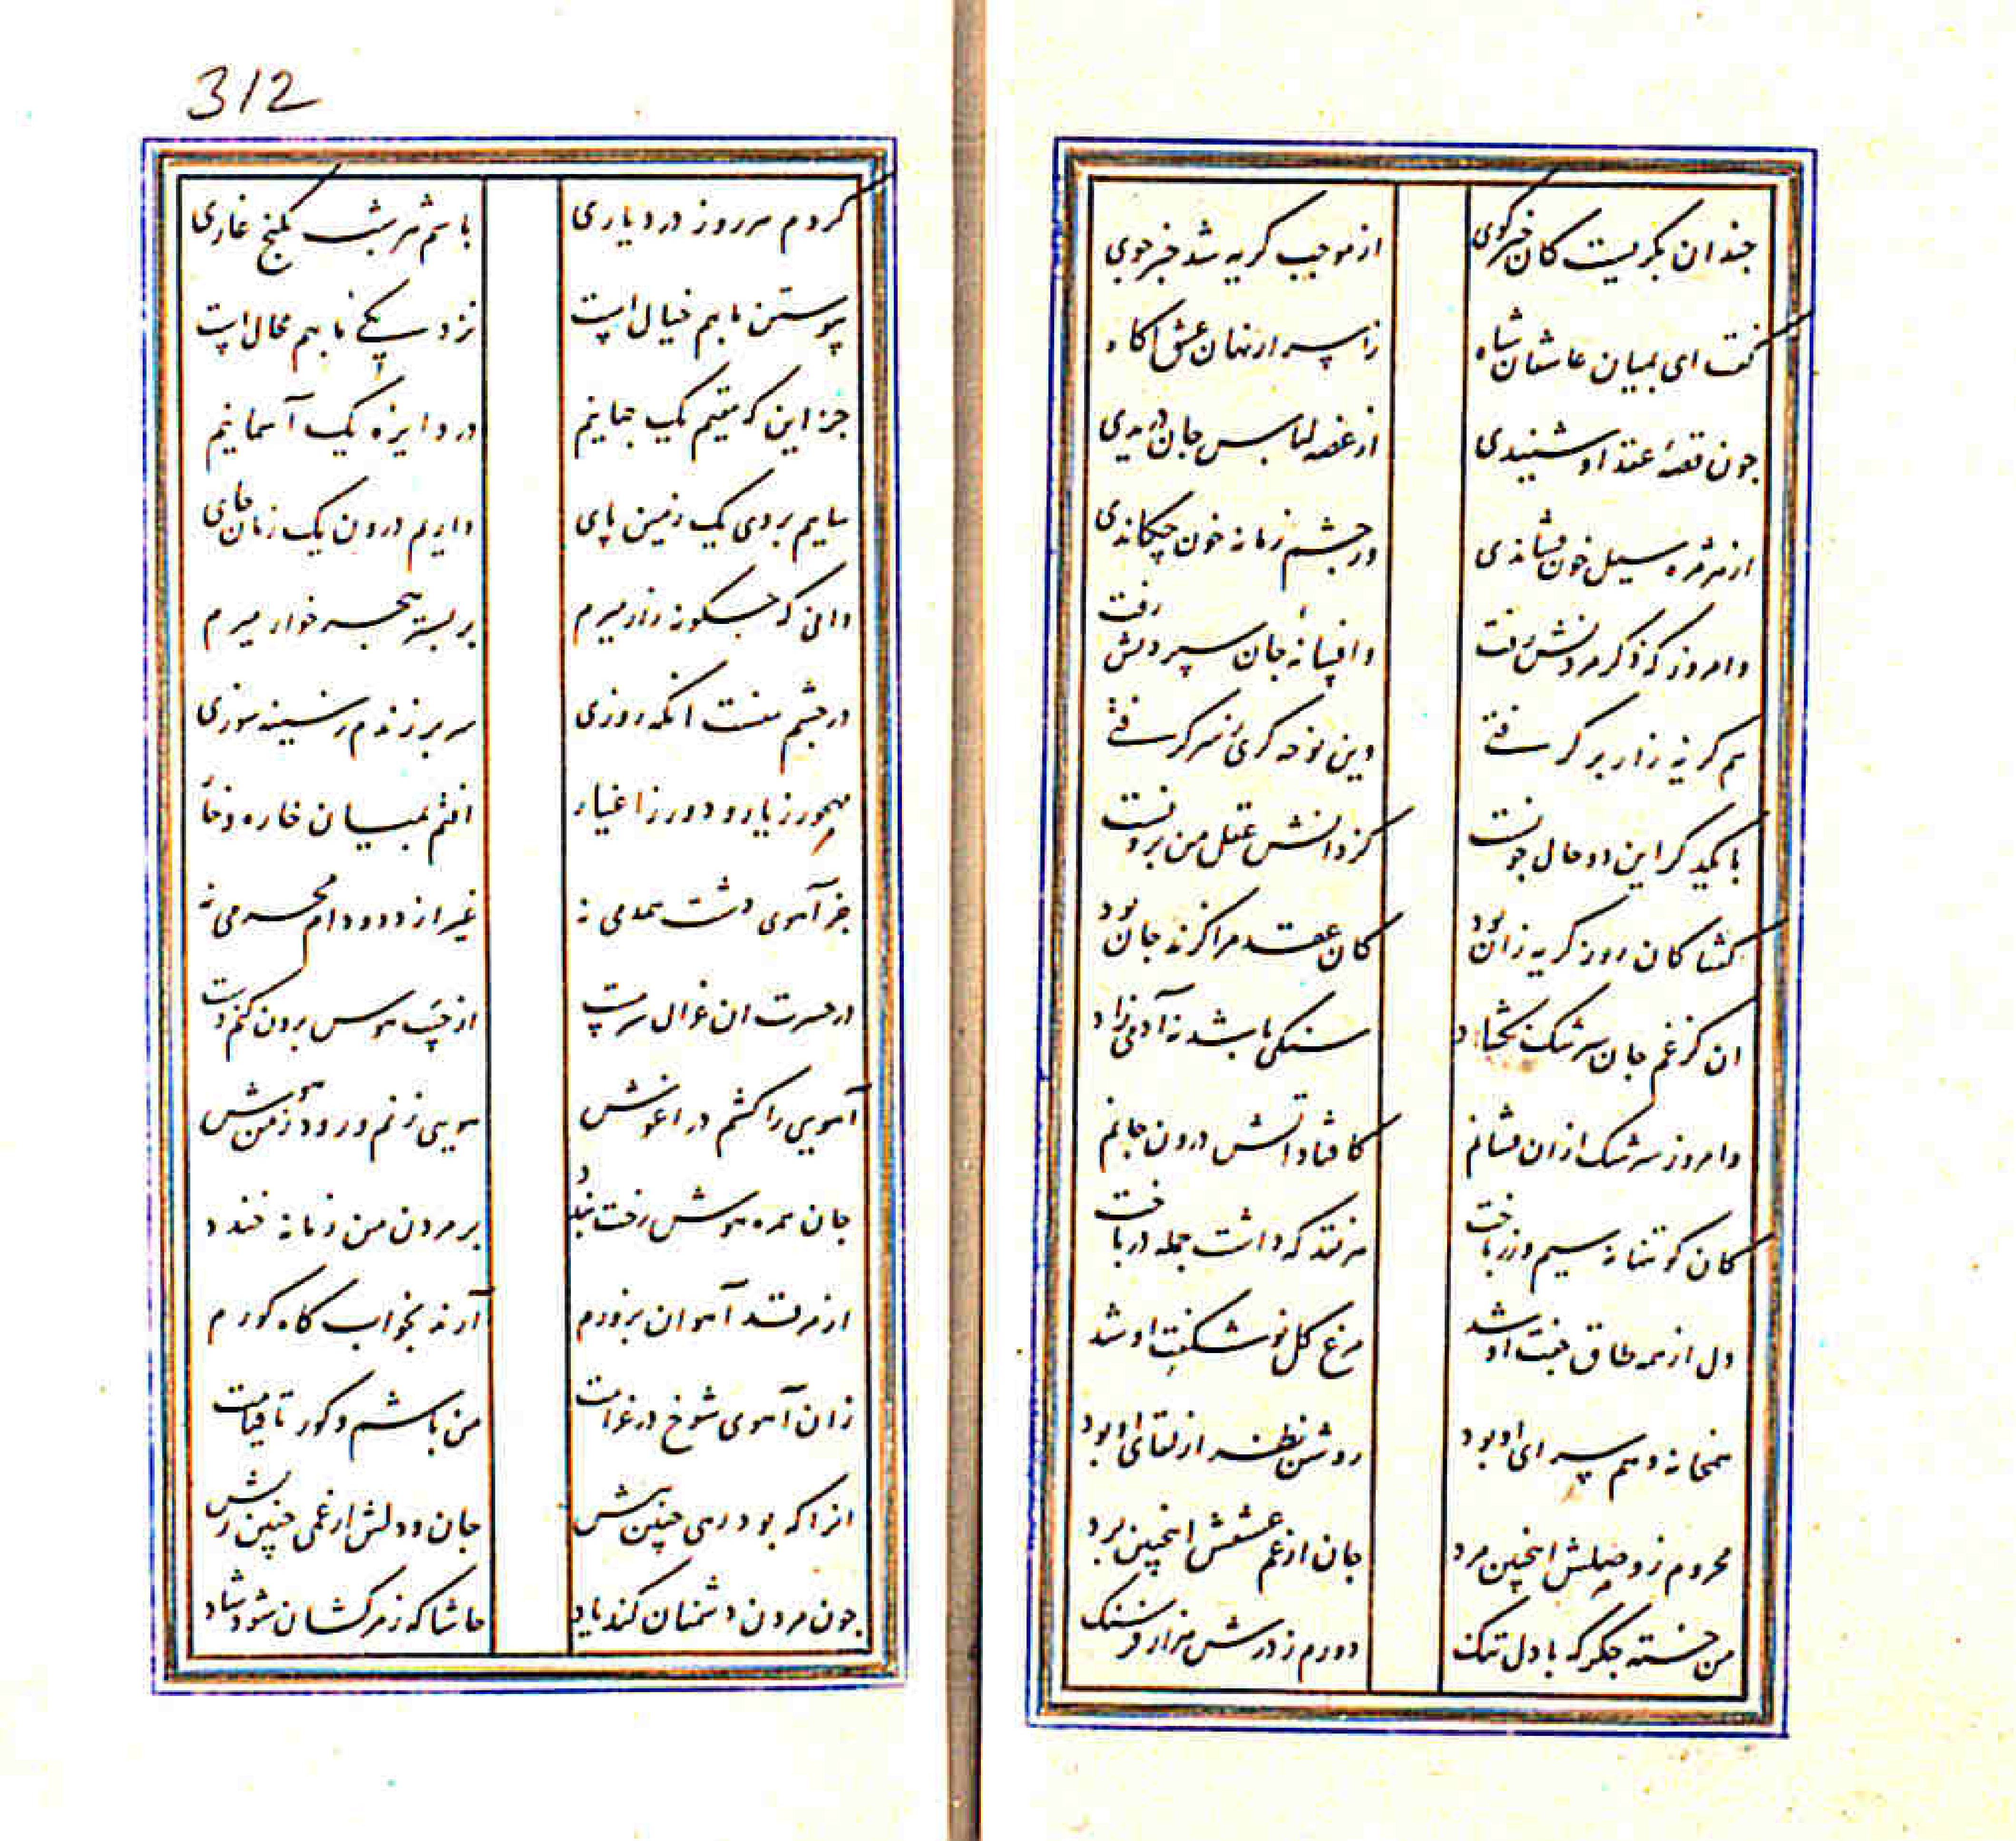 چندان بگریست کان خبرگوی
از موجب گریه شد خبرجوی
گفت ای بمیان عاشقان شاه
ز اسرار نهان عشق آگاه
چون قصهٔ عقد او شنیدی
از غصه لباس جان دریدی
از هر مژه سیل خون فشاندی
در چشم زمانه خون چکاندی
و امروز که ذکر مردنش رفت
و افسانهٔ جان سپردنش رفت
هم گریهٔ زار برگرفتی
وین نوحه گری ز سر گرفتی
با یکدیگر این دو حال چونست
کز دانش عقل من برونست
گفتا کان روز گریه زان بود
کان عقد مرا گزند جان بود
آن کز غم جان سرشک نگشاد
سنگی باشد نه آدمی زاد
و امروز سرشک ازان فشانم
کافتاد آتش درون جانم
کان کو نه تنها سیم و زر باخت
هر نقد که داشت جمله در باخت
دل از همه طاق جفت او شد
مرغ گل نوشکفت او شد
همخانه و هم سرای او بود
روشن نظر از لقای او بود
محروم ز وصلش اینچنین مرد
جان از غم عشقش اینچنین برد
من خسته جگر که با دل تنگ
دورم ز درش هزار فرسنگ
312
گردم هر روز در دیاری
باشم هر شب بکنج غاری
پیوستن ما بهم خیال است
نزدیکی ما بهم محال است
جز این که مقیم یک جهانیم
در دایرهٔ یک آسمانیم
ساییم بروی یک زمین پای
داریم درون یک زمان جای
دانی که چگونه زار میرم
بر بستر هجر خوار میرم
در چشم منست آنکه روزی
سر بر زندم ز سینه سوزی
مهجور ز یار و دور ز اغیار
افتم بمیان خاره و خار
جز آهوی دشت همدمی نه
غیر از دد و دام محرمی نه
در حسرت آن غزال سرمست
از جیب هوس برون کنم دست
آهویی را کشم در آغوش
هویی زنم و رود ز من هوش
جان همره هوش رخت بندد
بر مردن من زمانه خندد
از مرقد آهوان بزورم
آرند بخوابگاه گورم
زان آهوی شوخ در غرامت
من باشم و گور تا قیامت
آنرا که بود رهی چنین پیش
جان و دلش از غمی چنین ریش
چون مردن دشمنان کند یاد
حاشا که ز مرگشان شود شاد